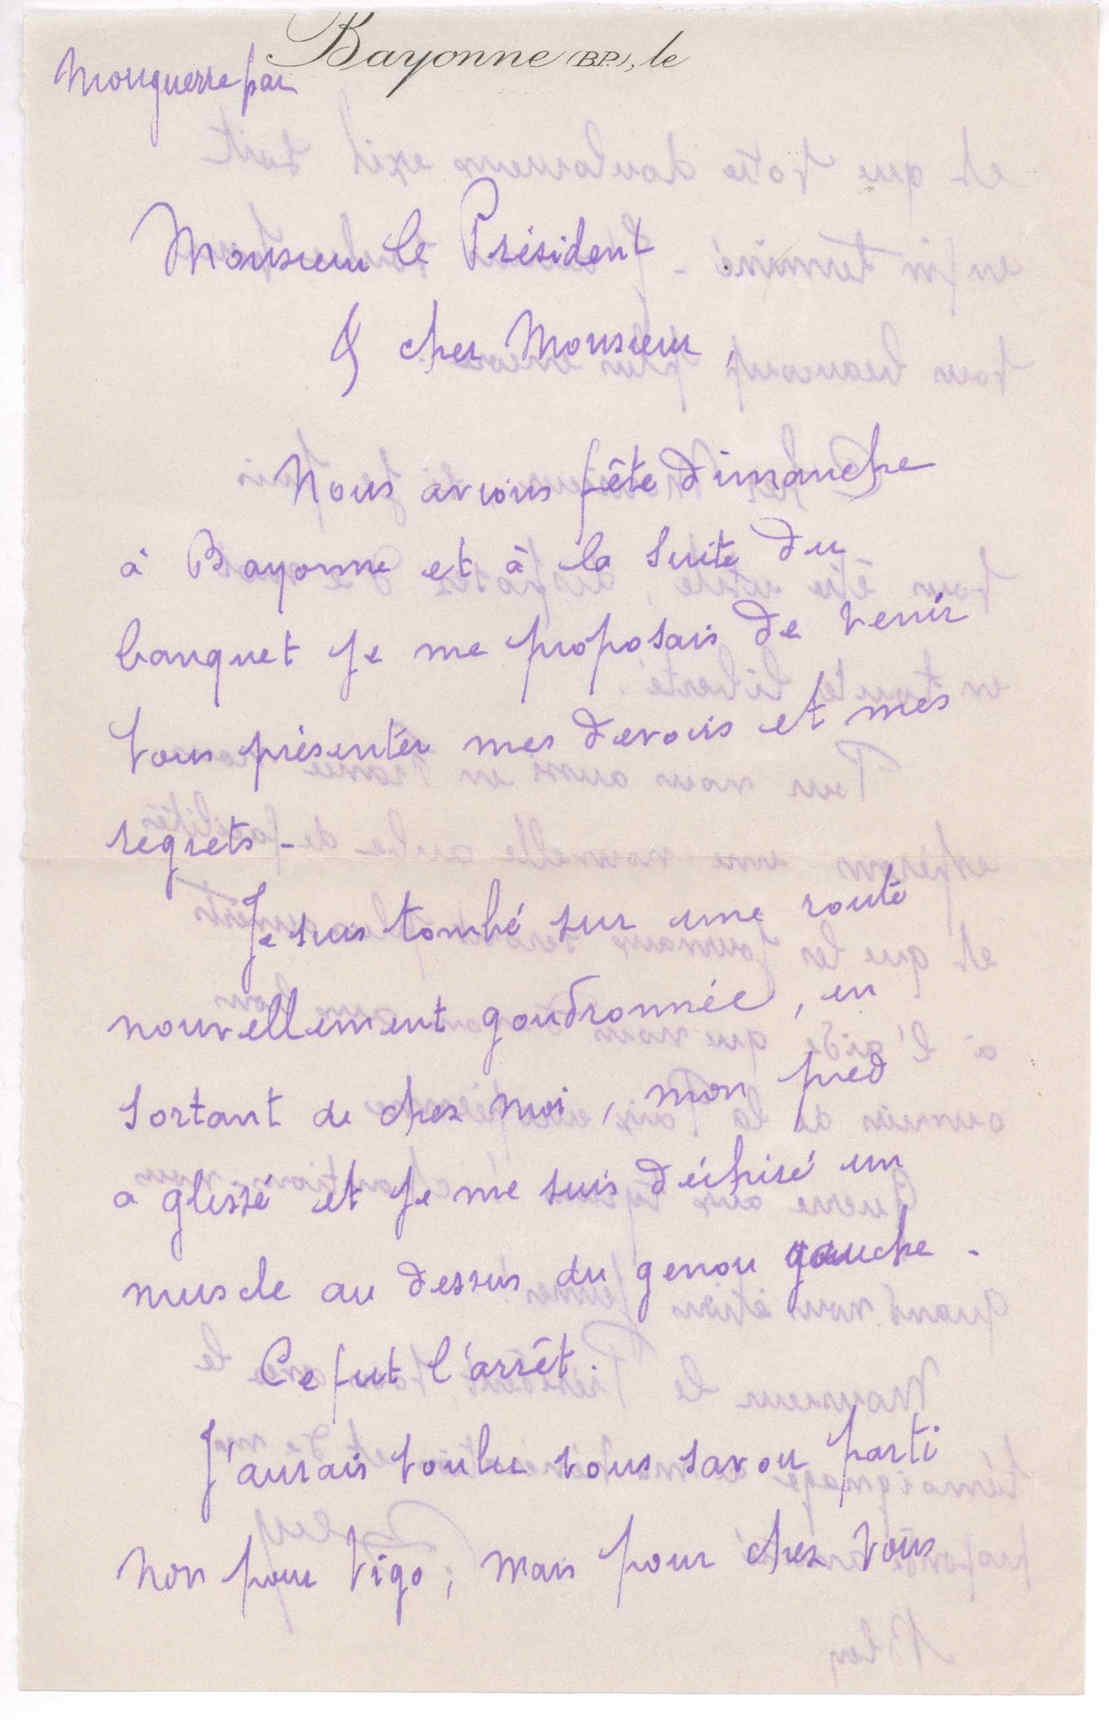 Mouguerre par Bayonne (B.P.), le
Monsieur le Président
& cher Monsieur,
Nous avions fête Dimanche
à Bayonne et à la suite du
banquet je me proposais de venir
vous présenter mes devoirs et mes
regrets -
Je suis tombé sur une route
nouvellement goudronnée, en
sortant de chez moi, mon pied
a glissé et je me suis déchiré un
muscle au dessus du genou gauche -
Ce fut l'arrêt.
J'aurais voulu vous savoir parti
non pour Vigo, mais pour chez vous